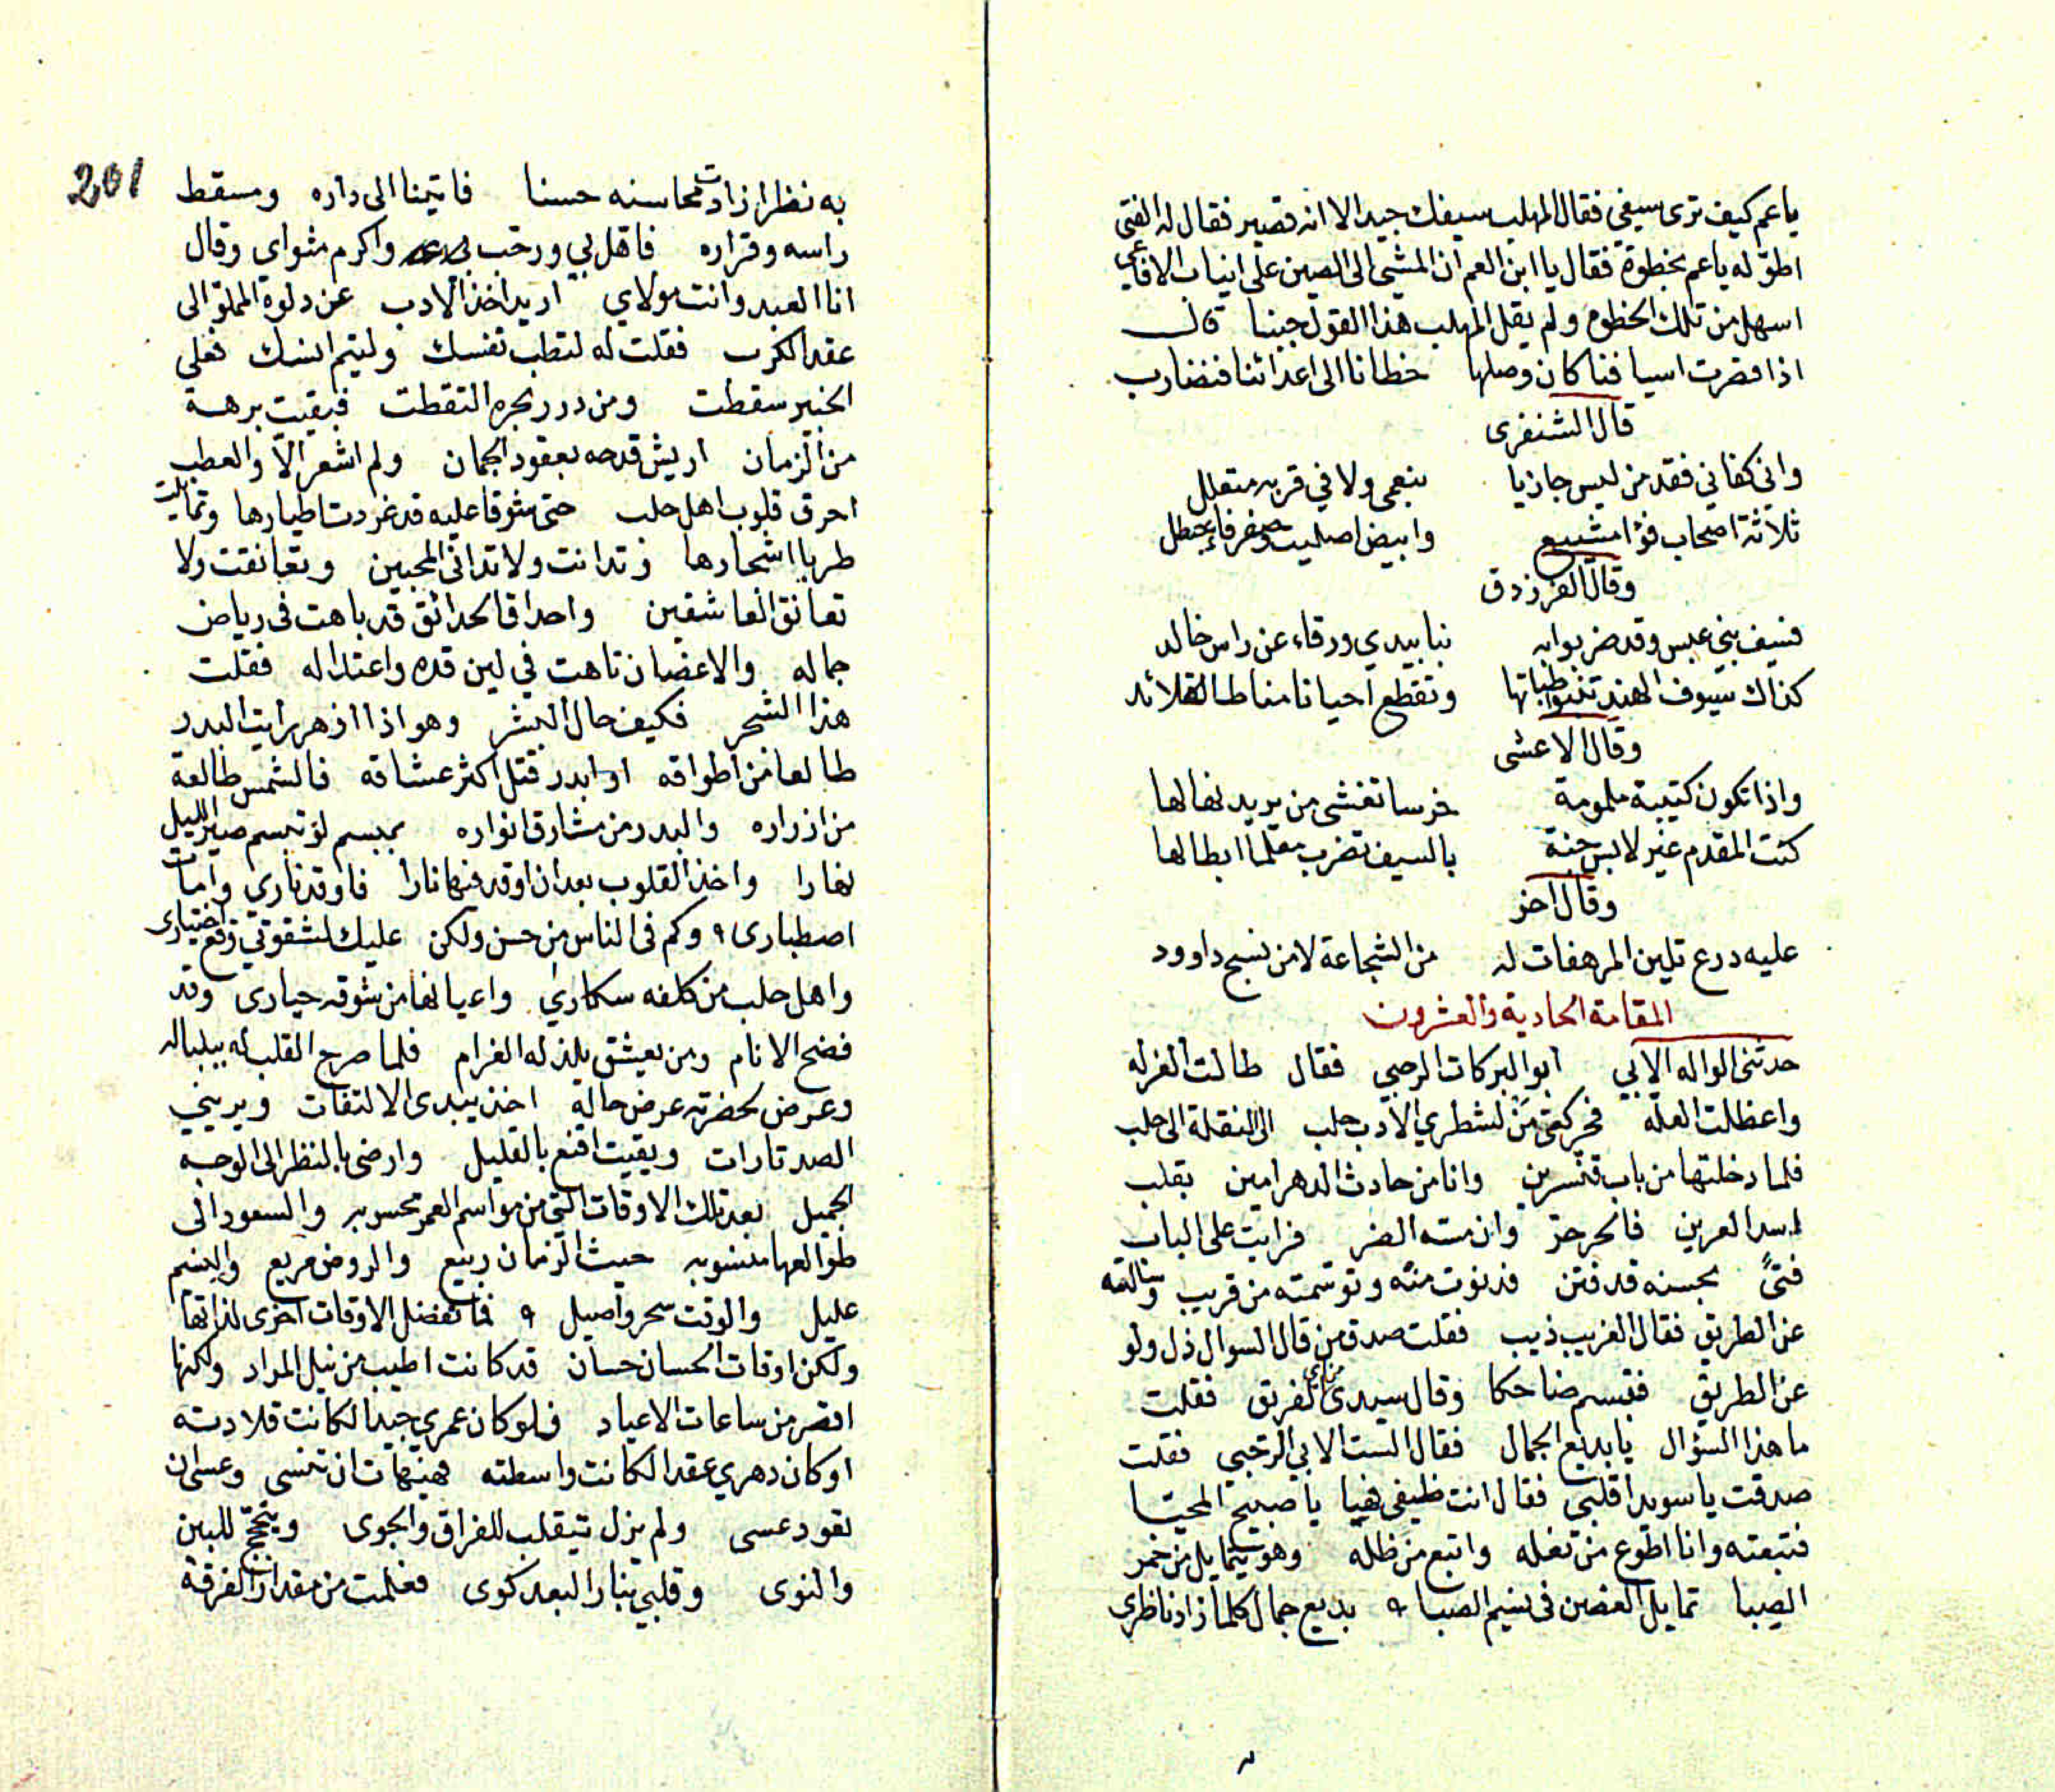 ياعم كيف ترى سيفى فقال المهلب سيفك جيد الا انه قصير فقال له الفتى
اطوّله ياعم بخطوة فقال يا ابن العم ان المشى الى الصين على انياب الافاعى
اسهل من تلك الخطوه ولم يقل المهلب هذا القول جبنا قال
اذا قصرت اسيافنا كان وصلها خطانا الى اعدائنا فنضارب
قال الشنفرى
وانى كفانى فقد من ليس جازيا بنعمى ولا في قربه متعلل
ثلاثة اصحاب فؤاد مشيع وابيض اصليت وصفراء عيطل
وقال الفرزدق
فسيف بنى عبس وقد ضربوا به نبا بيدي ورقاء عن راس خالد
كذاك سيوف الهند تنبوا ظباتها وتقطع احيانا مناط القلائد
وقال الاعشى
واذا تكون كتيبة ملمومة خرسا تغشى من يريد نهالها
كنت المقدم غير لابس جنة بالسيف تضرب معلما ابطالها
وقال اخر
عليه درع تلين المرهفات له من الشجاعة لا من نسج داوود
المقامة الحادية والعشرون
حدثنى الواله الابي ابو البركات الرحبي فقال طالت العزله
واعظلت العله فحركتى من لشطري الادب حلب الى النقلة الى حلب
فلما دخلتها من باب قنسرين وانا من حادث الدهر امين بقلب
اسد العرين فالحر حر وان مسه الضر فرايت على الباب
فتىً بحسنه قد فتن فدنوت منه وتوسمته من قريب وسالته
عن الطريق فقال الغريب ذيب فقلت صدق من قال السوال ذل ولو
عن الطريق فتبسم ضاحكا وقال سيدى من اى الفريق فقلت
ما هذا السؤال يا بديع الجمال فقال الست الابي الرحبي فقلت
صدقت يا سويدا قلبى فقال انت ضيفى فهيا يا صبيح المحيا
فتبعته وانا اطوع من نعله واتبع من ظله وهو يتمايل من خمر
الصبا تمايل الغصن فى نسيم الصبا ه بديع جمال كلما زاد ناظرى
201
به نظرا زادت محاسنه حسنا فاتينا الى داره ومسقط
راسه وقراره فاهل بي ورحب بى واكرم مثواى وقال
انا العبد وانت مولاي اريد اخذ الادب عن دلوة المملوّ الى
عقد الكرب فقلت له لتطب نفسك وليتم انسك فعلى
الخبير سقطت ومن درر بحره التقطت فبقيت برهة
من الزمان اريش قدحه بعقود الجمان ولم اشعر الاّ والعطب
احرق قلوب اهل حلب حتى شوقا عليه قد غردت اطيارها وتمايلت
طربا اشجارها وتدانت ولا تدانى المحبين وتعانقت ولا
تعانق العاشقين واحداق الحدائق قد باهت فى رياض
جماله والاغصان تاهت في لين قده واعتداله فقلت
هذا الشجر فكيف حال البشر وهو اذا ازهر رايت البدر
طالعا من اطواقه او ابدر قتل اكثر عشاقه فالشمس طالعة
من ازراره والبدر من مشارق انواره بمبسم لو تبسم صير الليل
نهارا واخذ القلوب بعد ان اوقد فيها نارا فاوقد ناري وامات
اصطبارى ه وكم فى الناس من حسن ولكن عليك لشقوتي وقع اختيارى
واهل حلب من كلفه سكارى واعيانها من شوقه حيارى وقد
فضح الانام ومن يعشق يلذ له الغرام فلما صرح القلب له ببلباله
وعرض بحضرته عرض حاله اخذ يبدى الالتفات ويريني
الصد تارات وبقيت اقنع بالقليل وارضى بالنظر الى الوجه
الجميل بعد تلك الاوقات التى من مواسم العمر محسوبه والسعود الى
طوالعها منسوبه حيث الزمان ربيع والروض مريع والنسيم
عليل والوقت سحر واصيل ه فما تفضل الاوقات اخرى لذاتها
ولكن اوقات الحسان حسان قد كانت اطيب من نيل المراد ولكنها
اقصر من ساعات الاعياد فلو كان عمري جيدا لكانت قلادته
او كان دهري عقدا لكانت واسطته فهيهات ان تنسى وعسى ان
تعود عسى ولم يزل يتقلب للفراق والجوى وينجح للبين
والنوى وقلبي بنار البعد كوى فعلمت من مقدار الفرقة